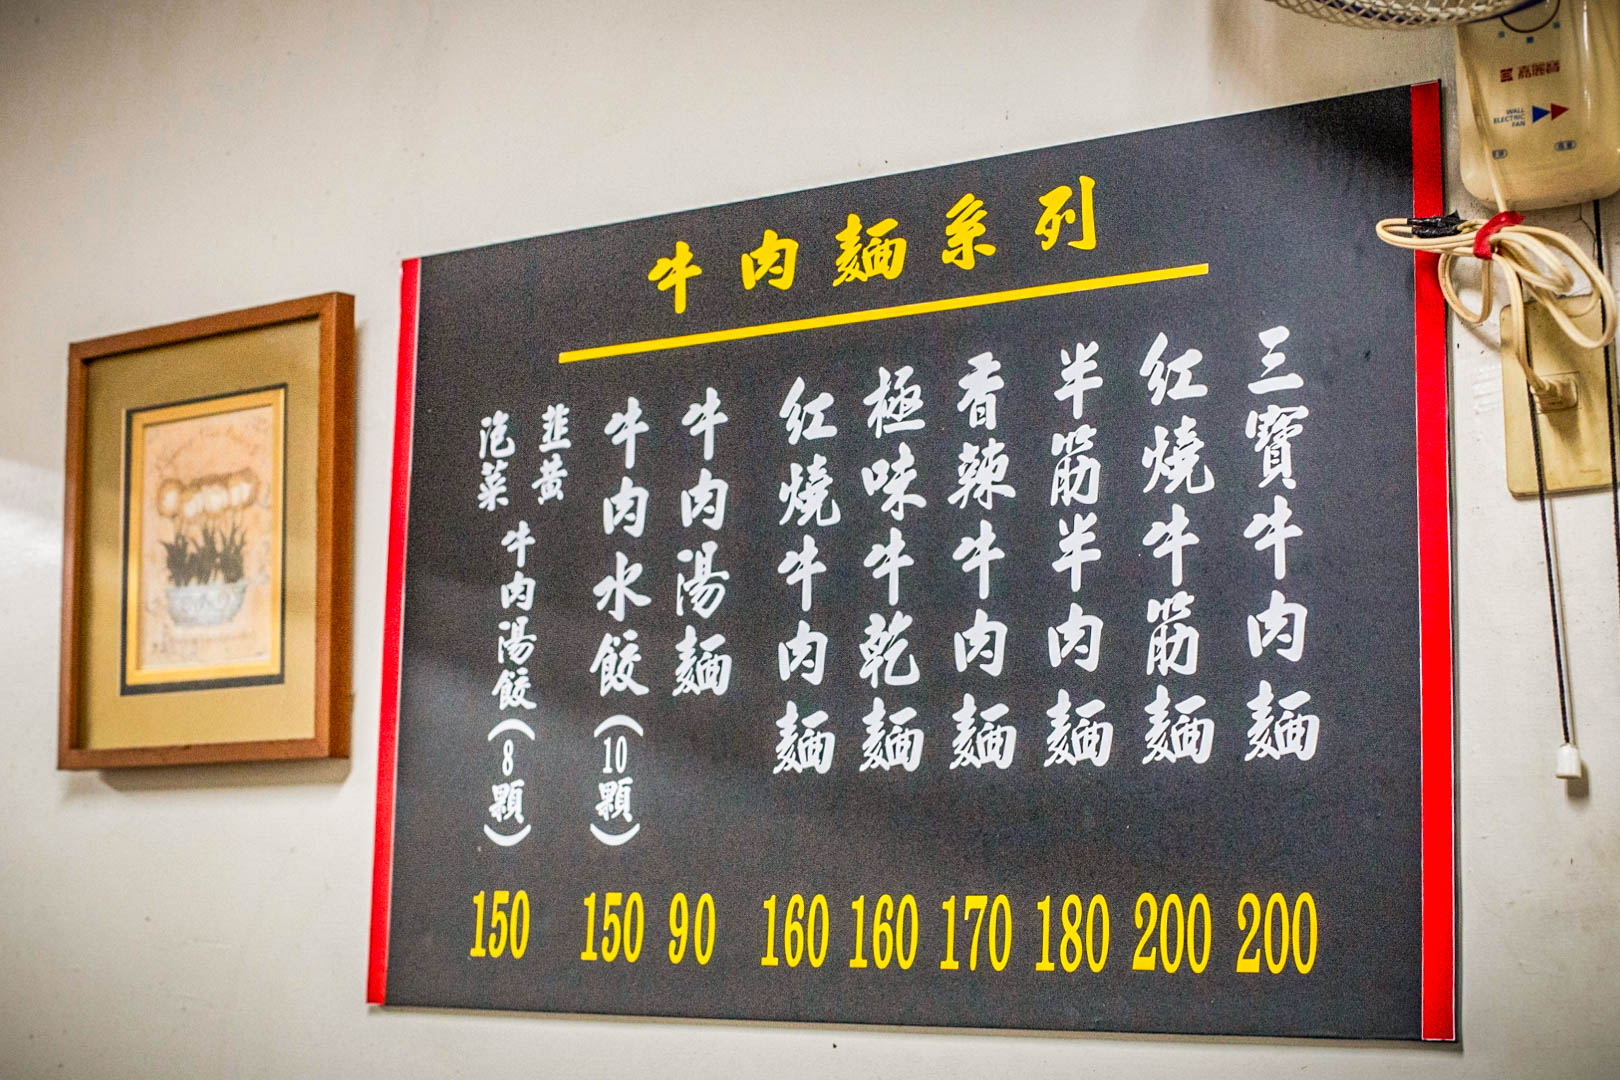 牛肉麵系列
三寶牛肉麵 200
紅燒牛筋麵 200
半筋半肉麵 180
香辣牛肉麵 170
極味牛乾麵 160
紅燒牛肉麵 160
牛肉湯麵 90
牛肉水餃(10顆) 150
韮黃
泡菜
牛肉湯餃(8顆) 150
嘉麗寶
WALL
ELECTRIC
FAN